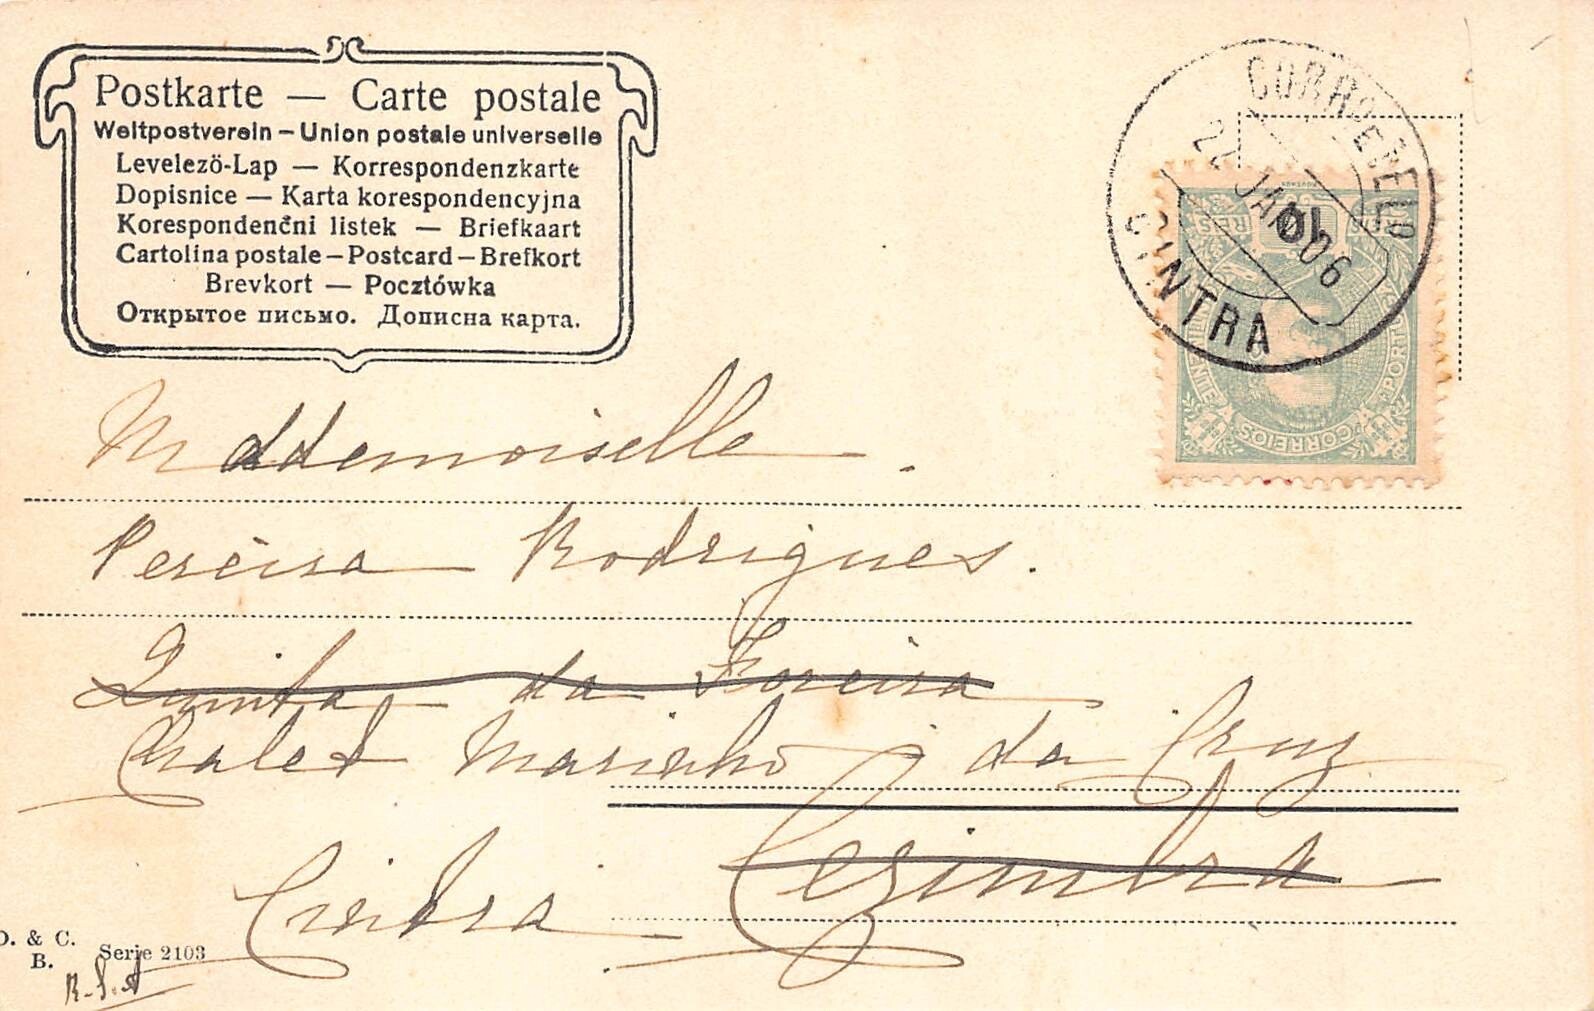 Postkarte — Carte postale
Weltpostverein – Union postale universelle
Levelezö-Lap — Korrespondenzkarte
Dopisnice — Karta korespondencyjna
Korespondenčni listek — Briefkaart
Cartolina postale – Postcard – Brefkort
Brevkort — Pocztówka
Открытое письмо. Дописна карта.
CORREIO
22 JAN 06
CINTRA
10
REIS REIS
PORTUGAL
CORREIOS
Mademoiselle.
Pereira Rodrigues.
Quinta da
Chalet Marinho da Cruz
Cezimbra
Cintra
D. & C.
B.
Serie 2103
R.S.A